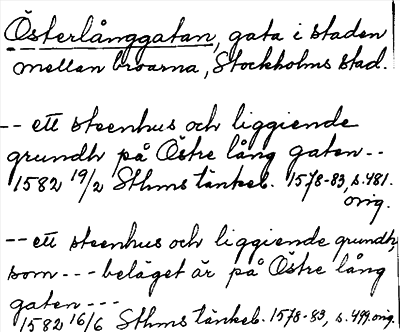 Österlånggatan, gata i staden
mellan broarna, Stockholms stad.
-- ett steenhus och liggiende
grundh på Östre lång gaten --
1582 19/2 Sthms tänkeb. 1578-83, s. 481.
orig.
-- ett steenhus och liggiende grundh,
som --- beläget är på Östre lång
gaten ---
1582 16/6 Sthms tänkeb. 1578-83, s. 499, orig.